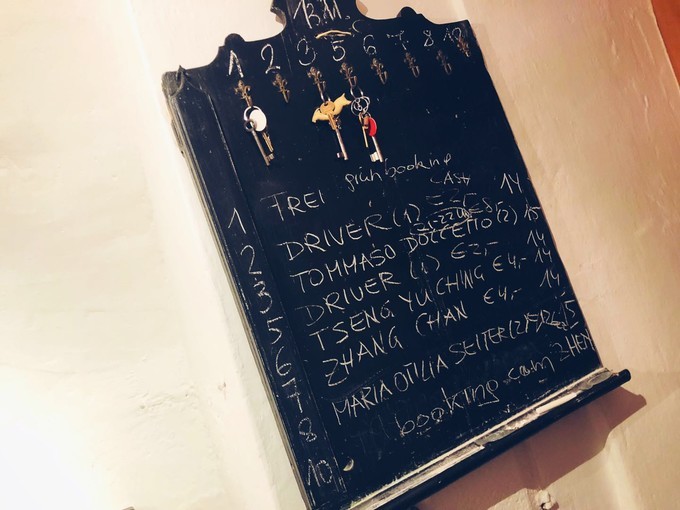 1 2 3 5 6 7 8 10
1 FREI booking 14
2 DRIVER (1)
3 TOMMASO DOLCETTO (2) 15
5 DRIVER (1) € 2,- 14
6 TSENG YU CHING € 4,- 14
7 ZHANG CHAN € 4,- 14
8 MARIA OTILIA SEITER (2)
10 booking.com ZHEN